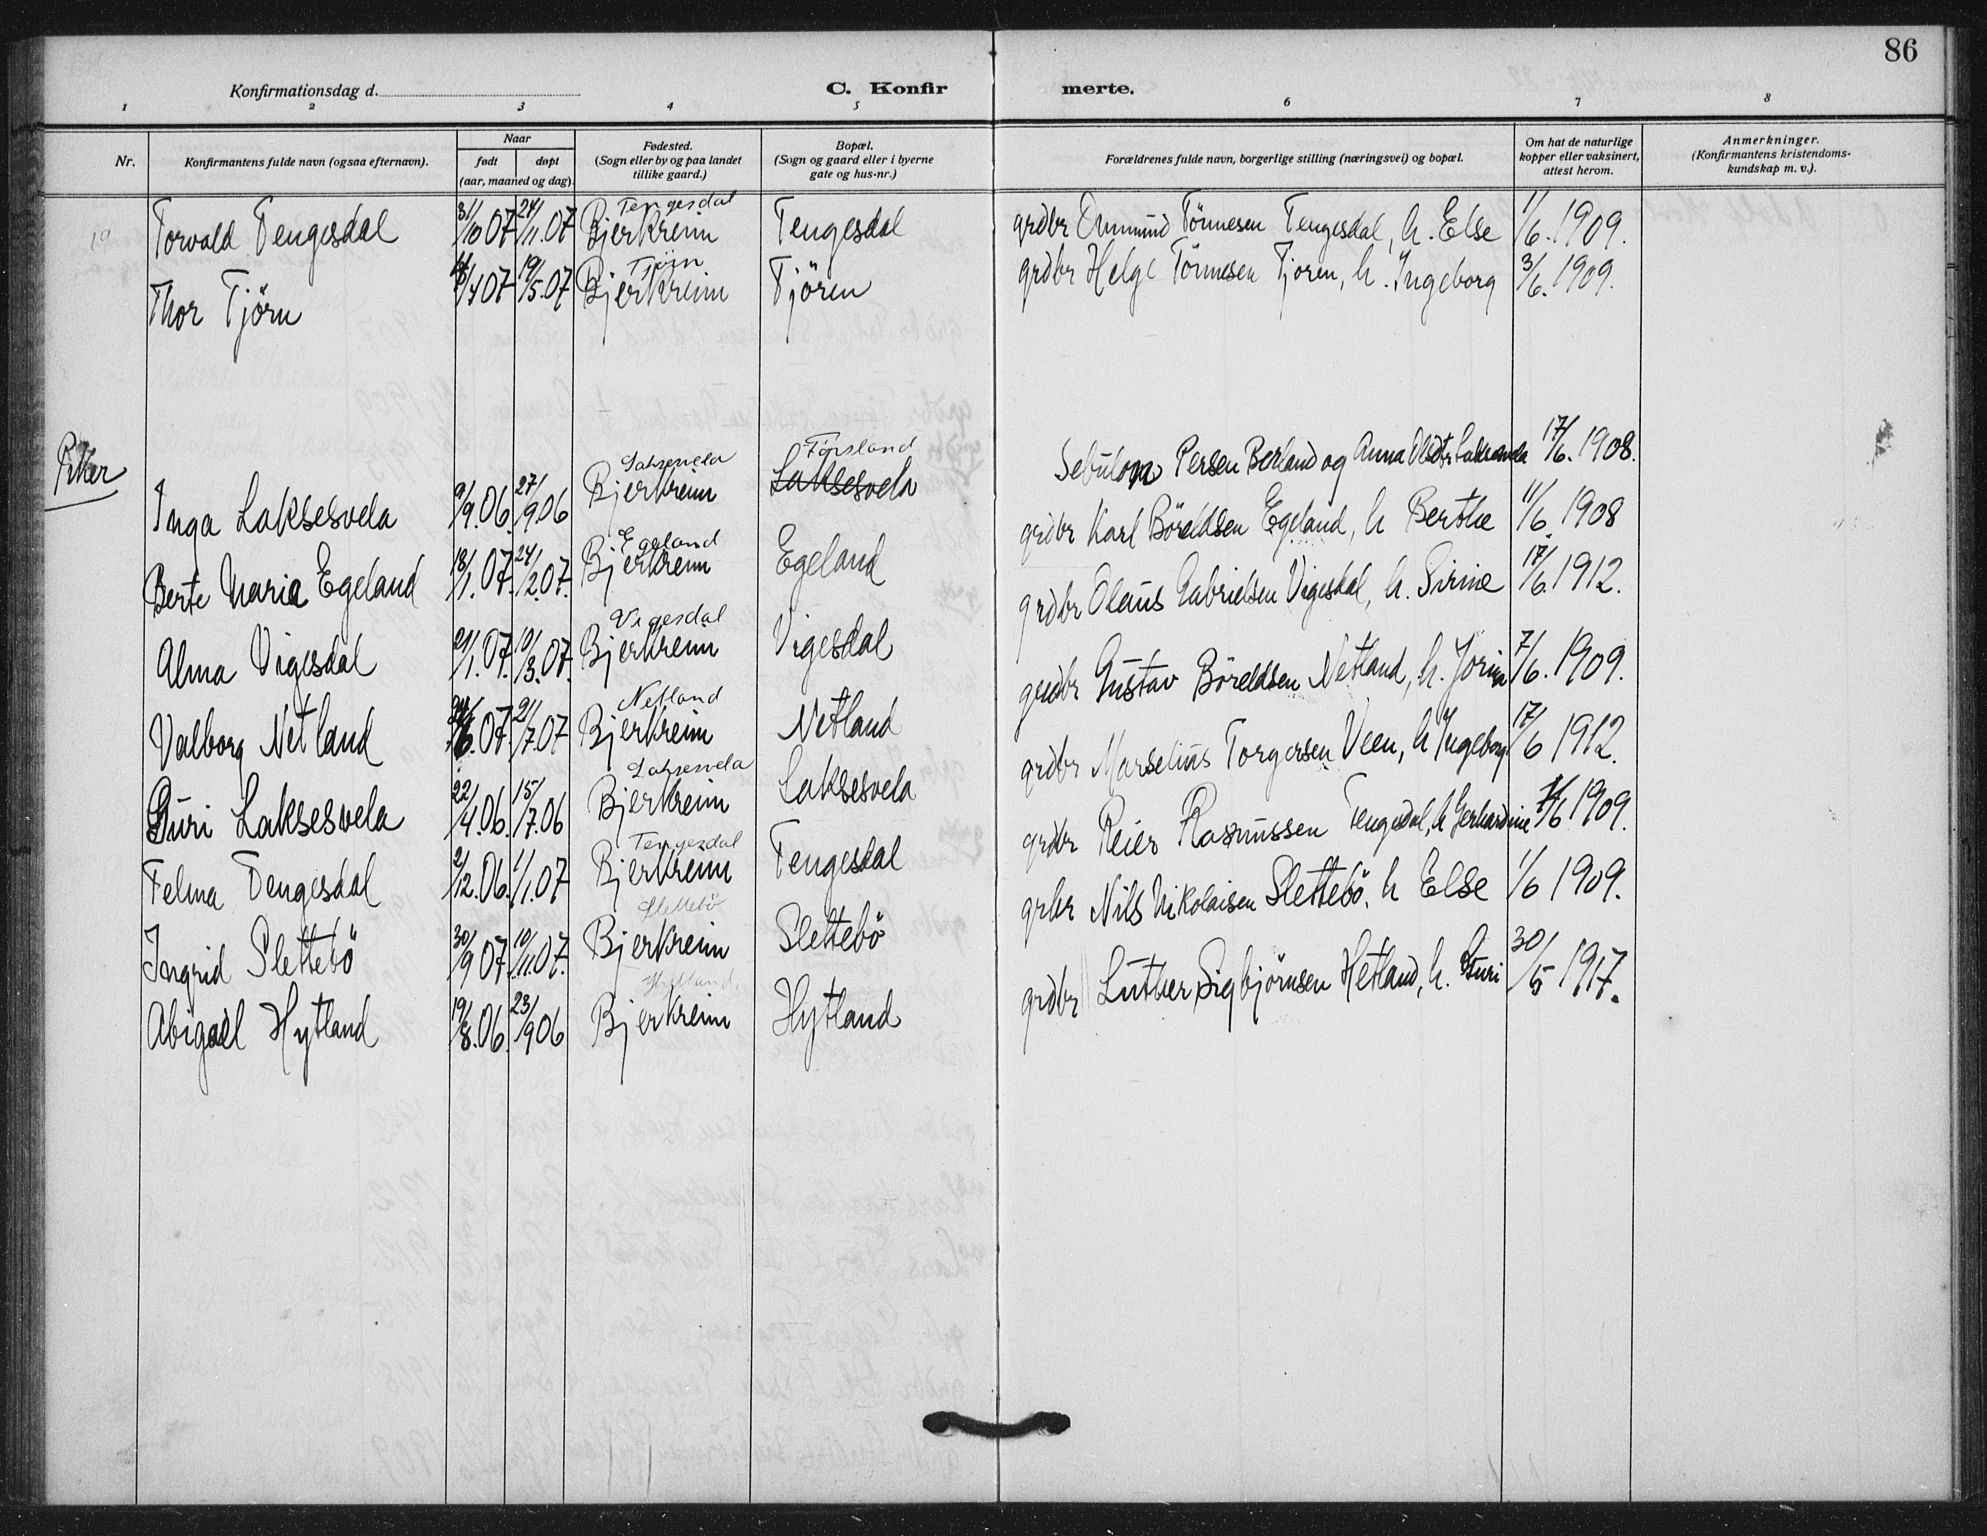 86
Konfirmationsdag d.
C. Konfir merte.
1 2 3 4 5 6 7 8
Nr.
Konfirmantens fulde navn (ogsaa efternavn).
Naar
født døpt
(aar, maaned og dag)
Fødested.
(Sogn eller by og paa landet
tillike gaard.)
Bopæl.
(Sogn og gaard eller i byerne
gate og hus-nr.)
Forældrenes fulde navn, borgerlige stilling (næringsvei) og bopæl.
Om hat de naturlige
kopper eller vaksinert,
attest herom.
Anmerkninger.
(Konfirmantens kristendoms-
kundskap m. v.).
19 Torvald Tengesdal 31/10 07 24/11.07 Tengesdal Bjerkreim Tengesdal grdbr Ommund Tönnesen Tengesdal, h. Else 1/6.1909.
Thor Tjörn /4 07 19/5.07 Tjörn Bjerkreim Tjören grdbr Helge Tönnesen Tjoren, h. Ingeborg 3/6.1909.
Piker
Inga Laksesvela 9/9.06 27/9 06 Laksesvela Bjerkreim Laksesvela Törsland Sebulon Persen Berland og Anna 17/6.1908.
Berte Maria Egeland 18/1.07. 24/2.07. Egeland Bjerkreim Egeland grdbr Karl Böreldsen Egeland, h Berthe 11/6.1908
Alma Vigesdal 21/1.07. 10/3.07. Vigesdal Bjerkreim Vigesdal grdbr Olaus Gabrielsen Vigesdal, h. Sirine 17/6.1912.
Valborg Netland /6.07 21/7.07 Netland Bjerkreim Netland grdbr Gustav Böreldsen Netland, h. Jorina 7/6.1909.
Guri Laksesvela 22/4.06. 15/7.06 Laksesvela Bjerkreim Laksesvela grdbr Marselius Torgersen Veen, h Ingeborg 17/6 1912.
Telma Tengesdal 2/12.06. 1/1.07 Tengesdal Bjerkreim Tengesdal grdbr Reier Rasmussen Tengesdal, h Gerhardine /6.1909.
Ingrid Slettebö 30/9 07 10/11.07. Slettebö Bjerkreim Slettebö grbr Nils Nikolaisen Slettebö. h Else 1/6 1909.
Abigael Hytland 19/8.06. 23/9 06 Hytland. Bjerkreim Hytland grdbr Luther Sigbjörnsen Hetland, h. Guri 30/5 1917.